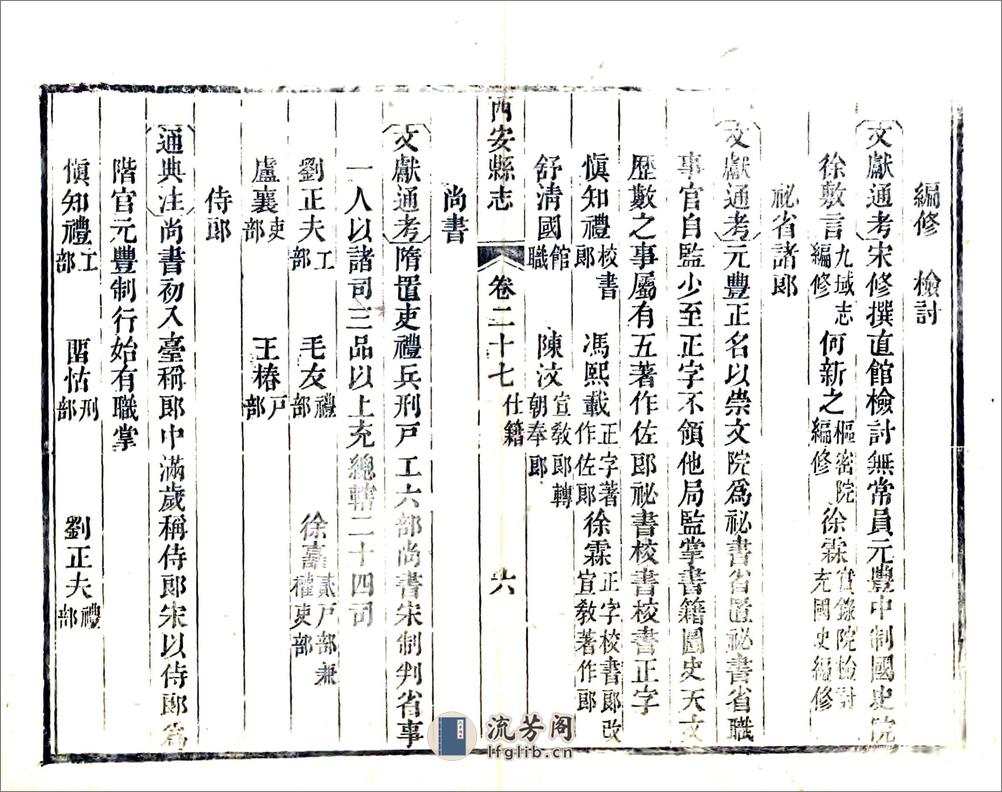 編修　檢討
文獻通考宋修撰直館檢討無常員元豐中制國史院
徐敷言九域志編修　何新之樞密院編修　徐霖實錄院檢討充國史編修
祕省諸郎
文獻通考元豐正名以崇文院爲祕書省置祕書省職
事官自監少至正字不領他局監掌書籍圖史天文
歴數之事屬有五著作佐郎祕書校書校書正字
愼知禮校書郎　馮熙載正字著作佐郎　徐霖正字校書郎改宣敎著作郎
舒清國館職　陳汶宣敎郎轉朝奉郎
西安縣志　卷二十七仕籍　六
尚書
文獻通考隋置吏禮兵刑戸工六部尚書宋制判省事
一人以諸司三品以上充總轄二十四司
劉正夫工部　毛友禮部　徐嚞貳戸部兼權吏部
盧襄吏部　王椿戸部
侍郎
通典注尚書初入臺稱郎中滿歲稱侍郎宋以侍郎爲
階官元豐制行始有職掌
愼知禮工部　怙刑部　劉正夫禮部
流芳阁
lfglib.cn